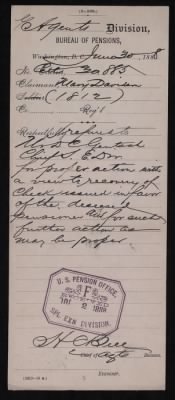 Agents Division,
BUREAU OF PENSIONS,
Washington, D.C., June 30, 1888
No. 30885
Claimant Mary
Soldier (1812)
Co. Reg't
Respectfully
Chief S. E. Div.
for proper action with
a view to recovery of
check issued in favor
of the deceased
pensioner and for such
further action as
may be proper.
U. S. PENSION OFFICE,
F
2 1888
SPL. EXN. DIVISION.
Chief of Agts Division.
Examiner.